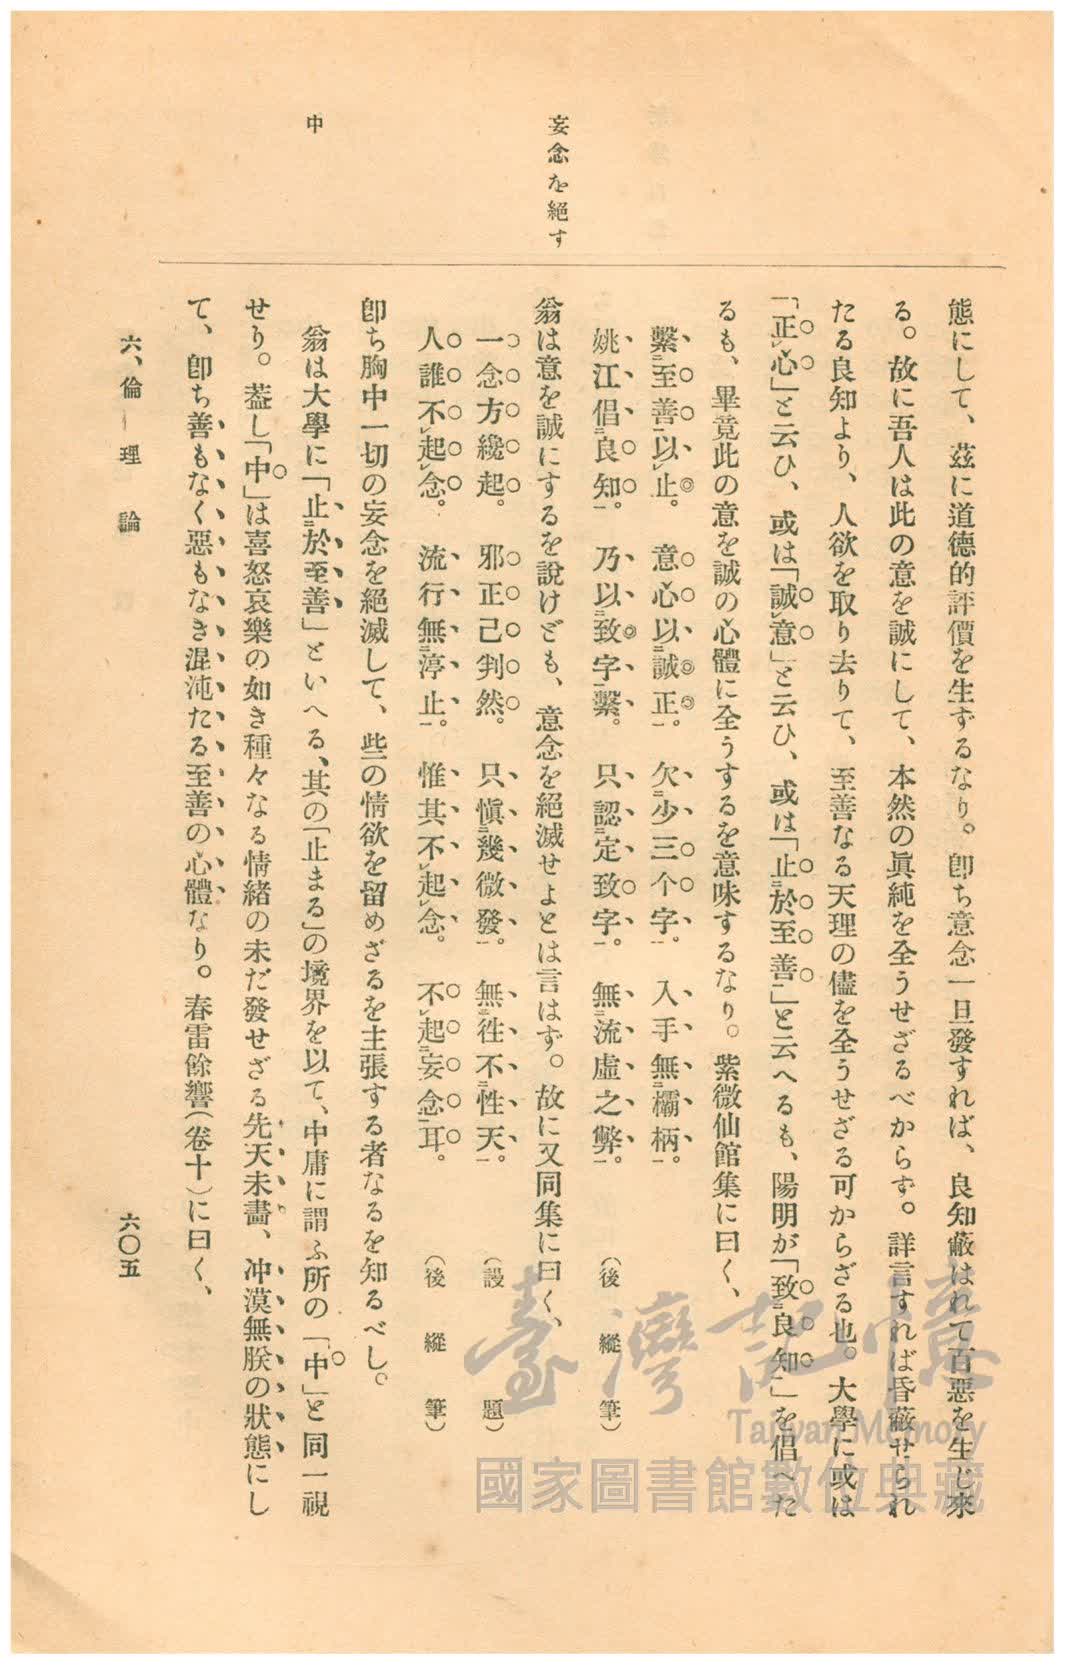 妄念を絕す
中
態にして、茲に道德的評價を生ずるなり。卽ち意念一旦發すれば、良知蔽はれて百惡を生じ來
る。故に吾人は此の意を誠にして、本然の眞純を全うせざるべからず。詳言すれば昏蔽せられ
たる良知より、人欲を取り去りて、至善なる天理の儘を全うせざる可からざる也。大學に或は
「正レ心」と云ひ、或は「誠レ意」と云ひ、或は「止二於至善一」と云へるも、陽明が「致二良知一」を倡へた
るも、畢竟此の意を誠の心體に全うするを意味するなり。紫微仙館集に曰く、
繫二至善一以レ止。 意心以二誠正一。 欠二少三个字一。 入手無二欛柄一。
姚江倡二良知一。 乃以二致字一繫。 只認二定致字一。 無二流虛之弊一。 (後縱筆)
翁は意を誠にするを說けども、意念を絕滅せよとは言はず。故に又同集に曰く、
一念方纔起。 邪正己判然。 只愼二幾微發一。 無二徃不一レ性レ天。 (謾題)
人誰不レ起レ念。 流行無二渟止一。 惟其不レ起レ念。 不レ起二妄念一耳。 (後縱筆)
卽ち胸中一切の妄念を絕滅して、些の情欲を留めざるを主張する者なるを知るべし。
翁は大學に「止二於至善一」といへる、其の「止まる」の境界を以て、中庸に謂ふ所の「中」と同一視
せり。葢し「中」は喜怒哀樂の如き種々なる情緒の未だ發せざる先天未畫、冲漠無朕の狀態にし
て、卽ち善もなく惡もなき混沌たる至善の心體なり。春雷餘響(卷十)に曰く、
六、倫理論
六〇五
臺灣記憶
Taiwan Memory
國家圖書館數位典藏